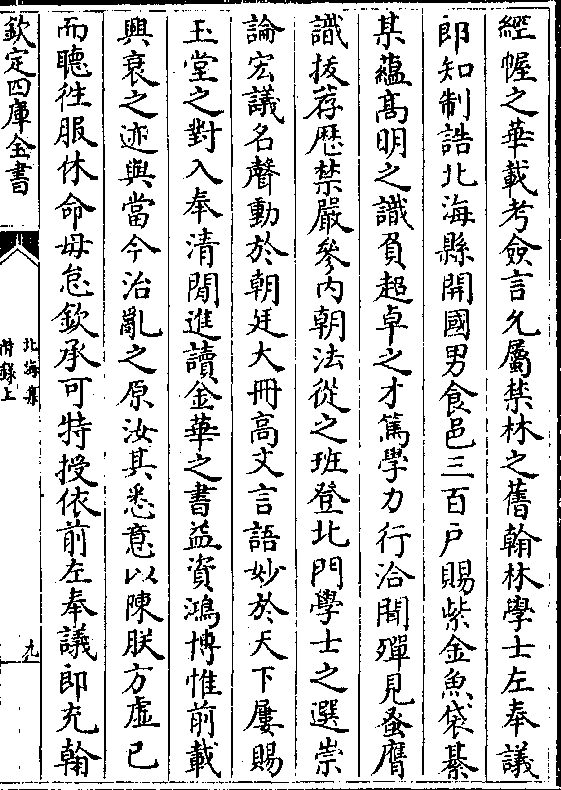 經幄之華載考僉言允屬禁林之舊翰林學士左奉議
郎知制誥北海縣開國男食邑三百户賜紫金魚袋綦
某藴髙明之識負超卓之才篤學力行洽聞殫見蚤膺
識拔荐歴禁嚴參内朝法從之班登北門學士之選崇
論宏議名聲動於朝廷大冊高文言語妙於天下屢賜
玉堂之對入奉清閒進讀金華之書益資鴻博惟前載
興衰之迹與當今治亂之原汝其悉意以陳朕方虚已
而聽徃服休命毋怠欽承可特授依前左奉議郎充翰
欽定四庫全書
北海集
附錄上
九